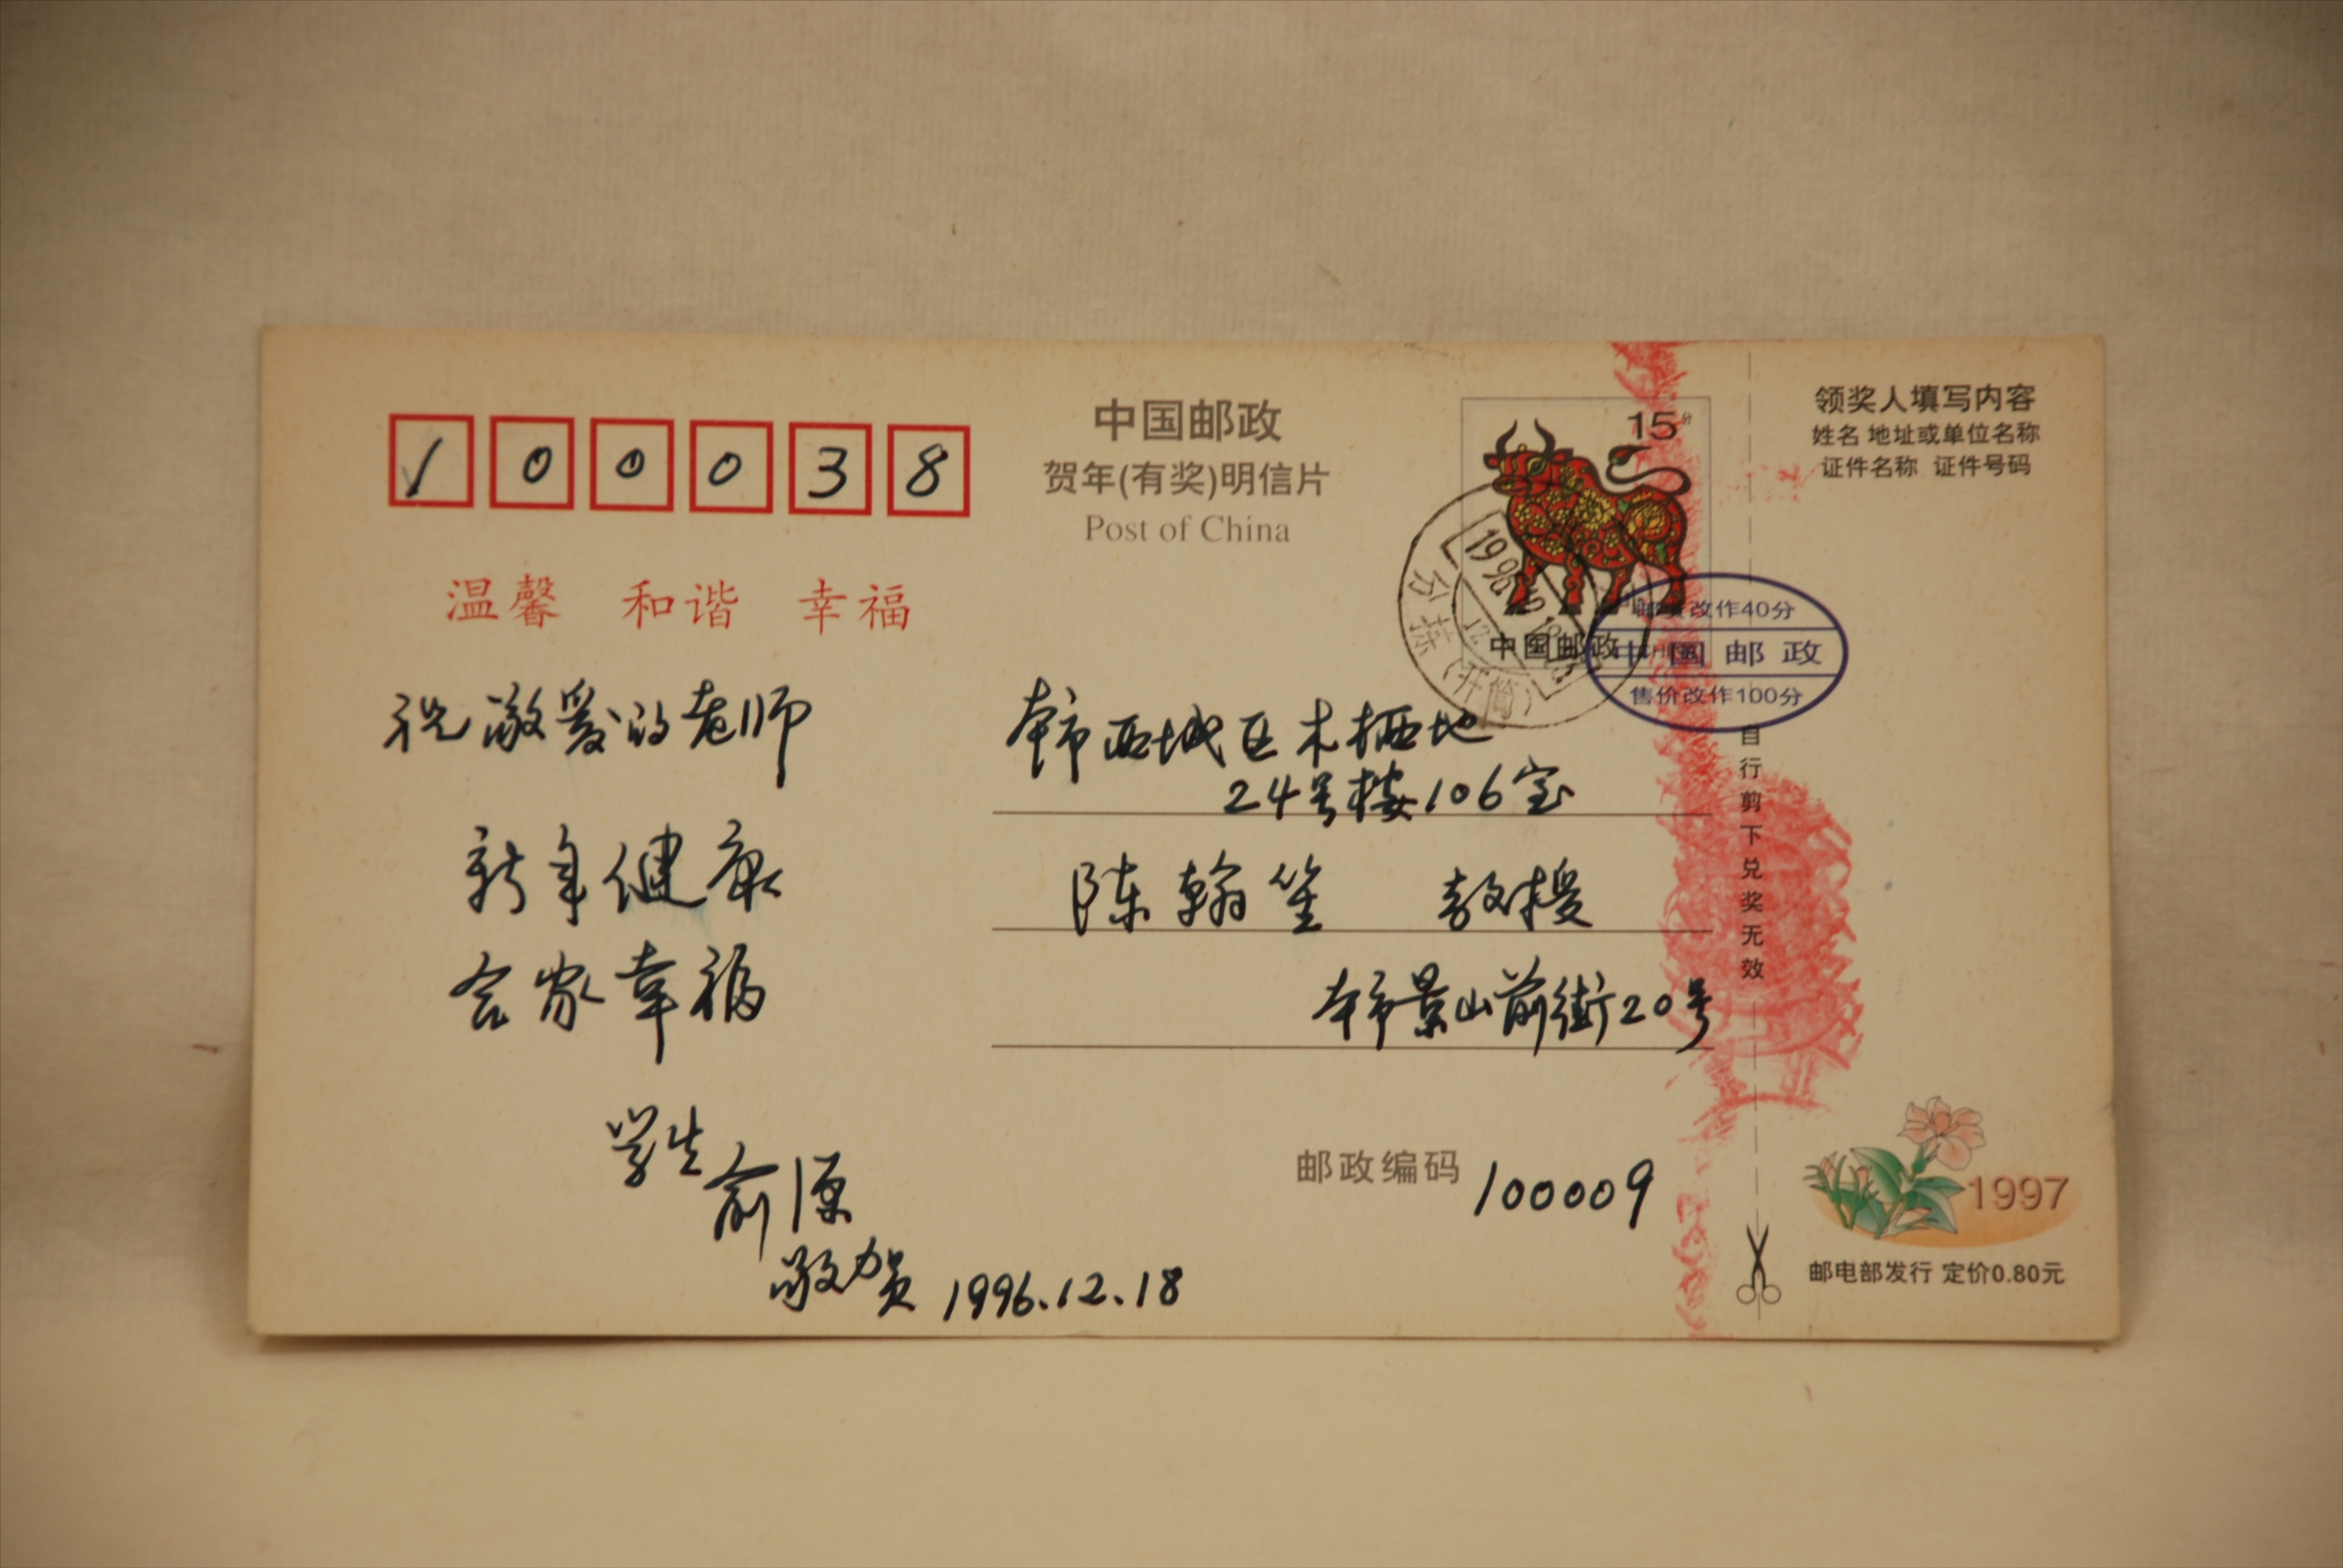 100038
中国邮政
贺年(有奖)明信片
Post of China
15分
中国邮政
1996.12.18
分拣(开筒)
邮资改作40分
中国邮政
售价改作100分
领奖人填写内容
姓名 地址或单位名称
证件名称 证件号码
温馨 和谐 幸福
祝敬爱的老师
新年健康
合家幸福
学生
俞源
敬贺 1996.12.18
本市西城区木樨地
24号楼106室
陈翰笙 教授
本市景山前街20号
邮政编码 100009
自行剪下兑奖无效
1997
邮电部发行 定价0.80元